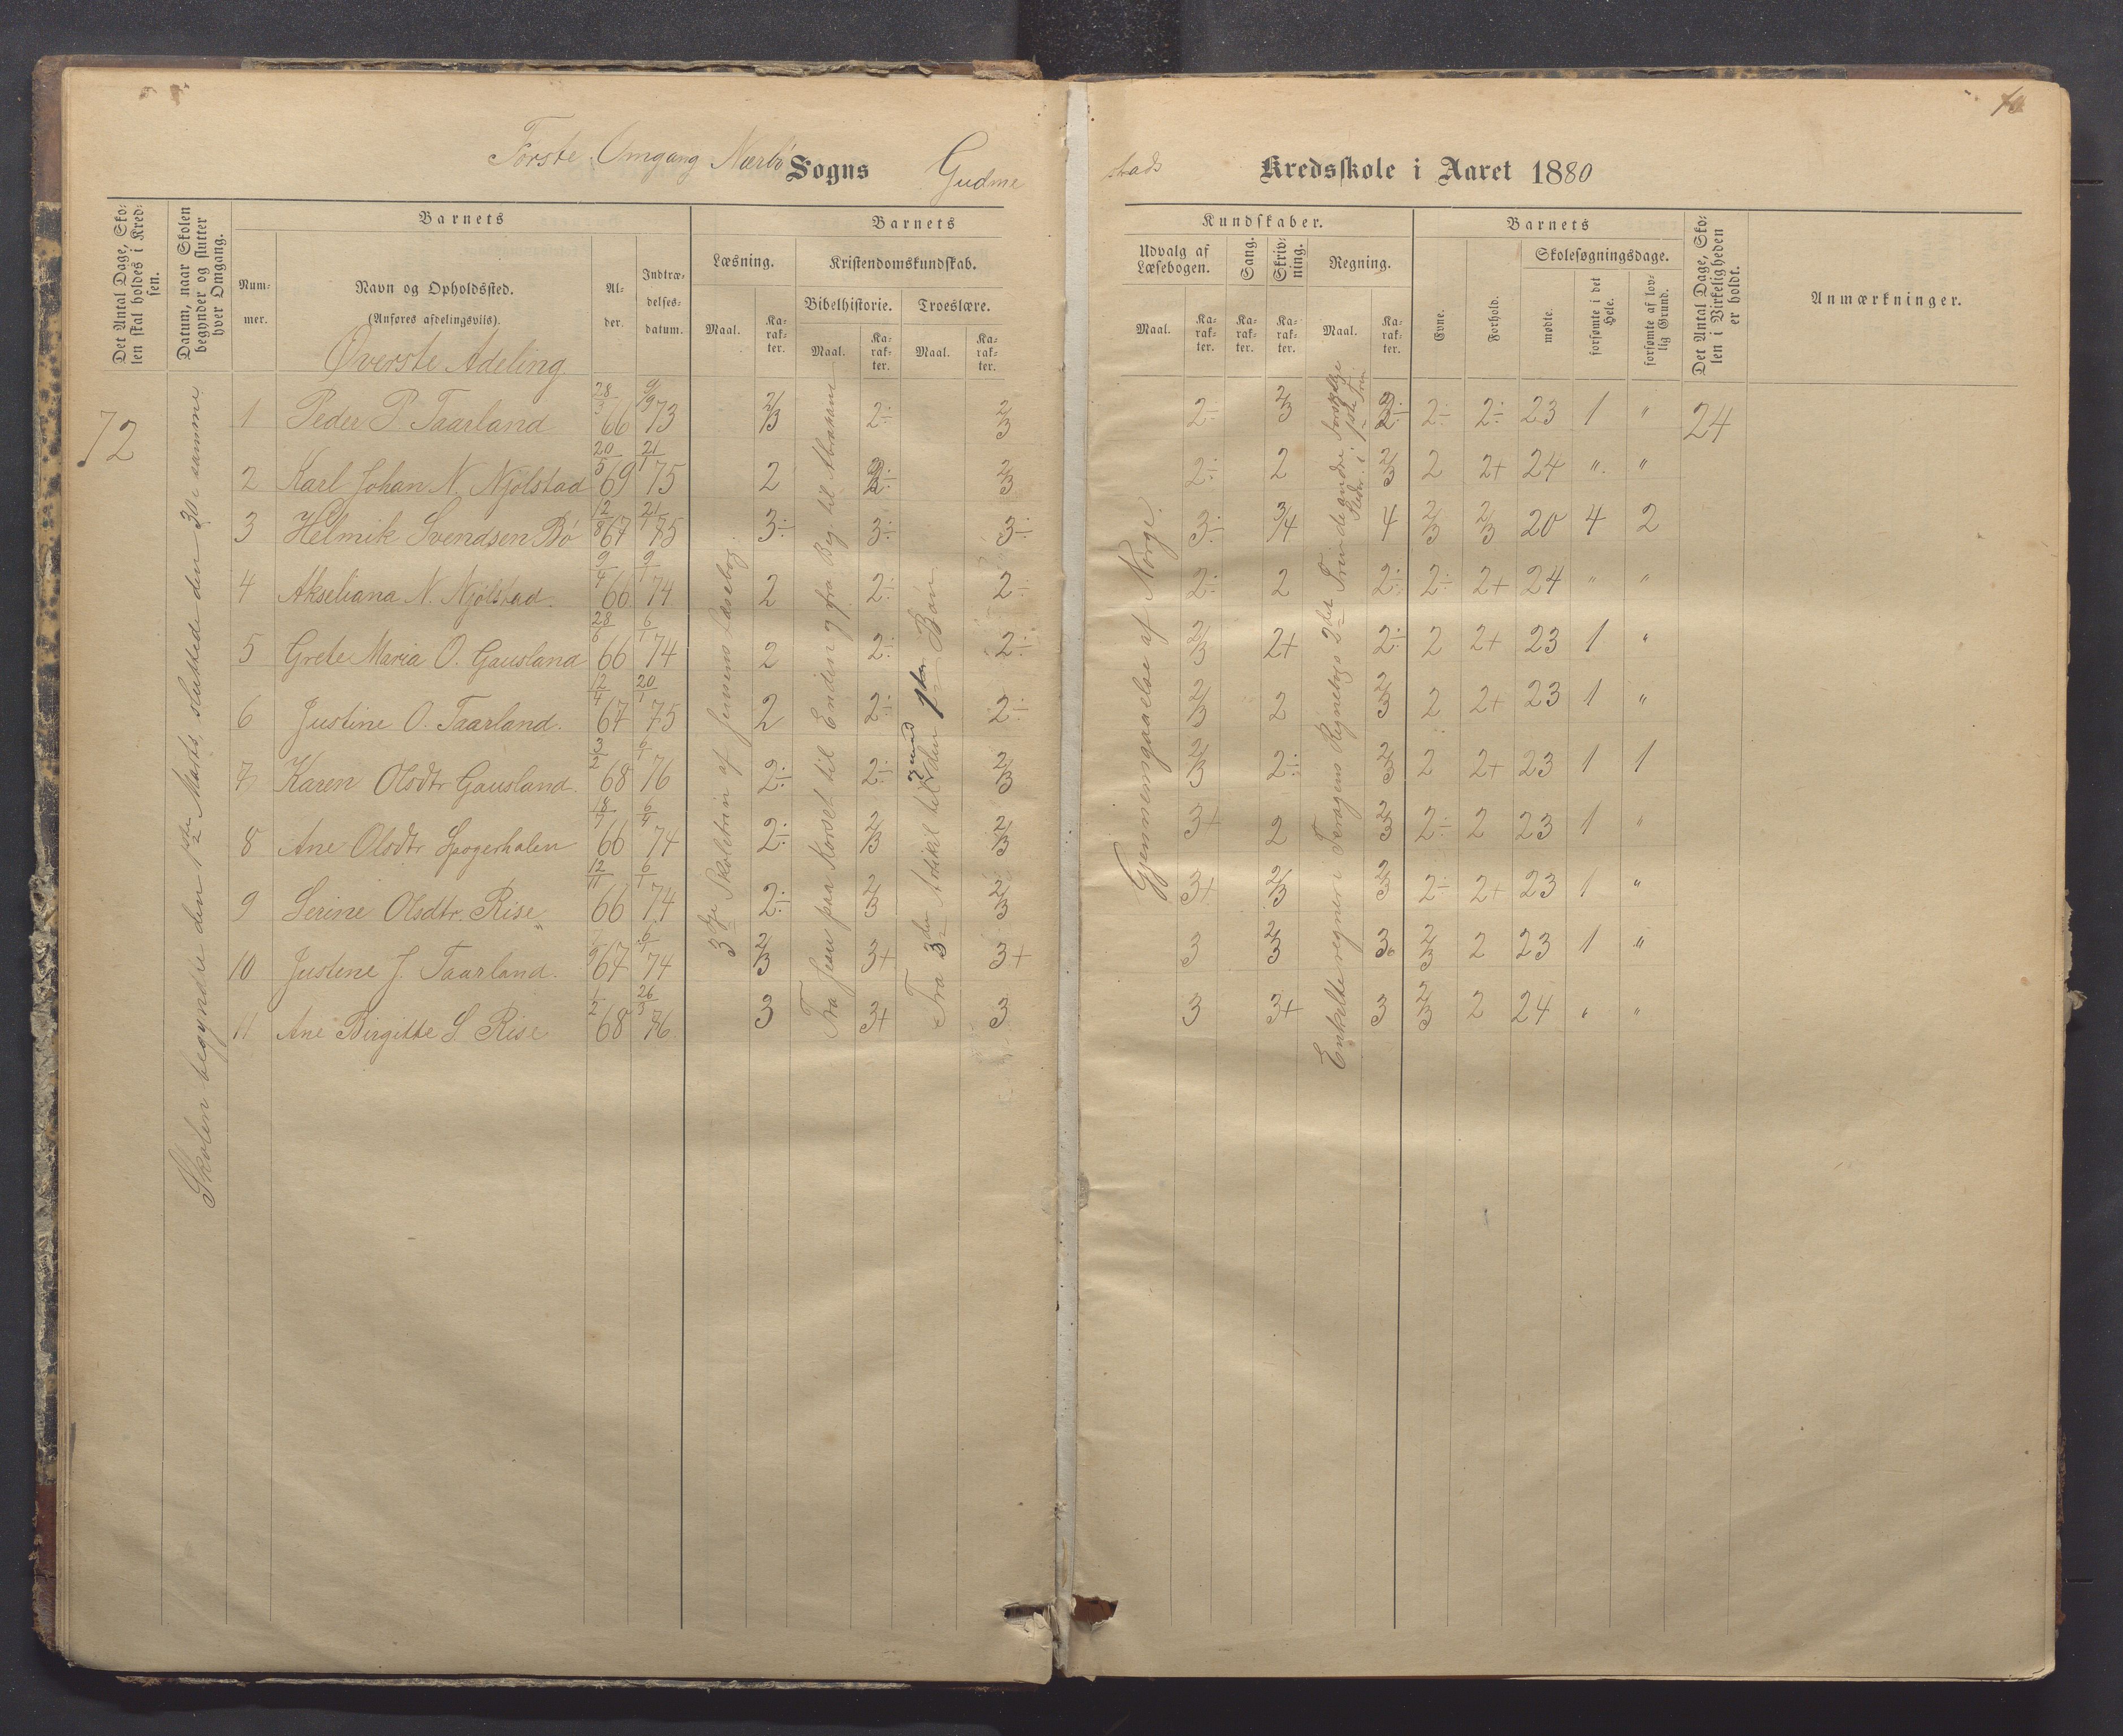 Første Omgang Nærbø Sogns Gudme
stads Kredsskole i Aaret 1880
Det Antal Dage, Skolen skal holdes i Kredsen.
Datum, naar Skolen begynder og slutter hver Omgang.
Barnets
Nummer.
Navn og Opholdssted.
(Anføres afdelingsviis).
Alder.
Indtrædelsesdatum.
Barnets
Læsning.
Maal.
Karakter.
Kristendomskundskab.
Bibelhistorie.
Maal.
Karakter.
Troeslære.
Maal.
Karakter.
Kundskaber.
Udvalg af Læsebogen.
Maal.
Karakter.
Sang.
Karakter.
Skrivning.
Karakter.
Regning.
Maal.
Karakter.
Barnets
Evne.
Forhold.
Skolesøgningsdage.
mødte.
forsømte i det Hele.
forsømte af lovlig Grund.
Det Antal Dage, Skolen i Virkeligheden er holdt.
Anmærkninger.
Øverste Adeling
72
Skolen begyndte den 1ste Marts, sluttede den 30te samme
3die Skoletrin af Jensens Læsebog.
Fra Jesu paa Korset til Enden og fra Beg. til Abraham
Fra 3die Artikel til den 1ste Bøn
Gjennemgaaelse af Norge.
Enkelte regner i Geragens Regnebogs 2det Trin de andre forskjellige Steder i 1ste Trin
24
1 Peder P. Taarland 28/3 66 9/9 73 2/3 2÷ 2/3 2÷ 2/3 2÷ 2÷ 2÷ 23 1 "
2 Karl Johan N. Njølstad 20/5 69 21/1 75 2 2÷ 2/3 2÷ 2 2/3 2 2+ 24 " "
3 Helmik Svendsen Bø 12/8 67 21/1 75 3÷ 3÷ 3÷ 3÷ 3/4 4 2/3 2/3 20 4 2
4 Akseliana N. Njølstad. 9/4 66 9/1 74 2 2÷ 2÷ 2÷ 2 2÷ 2÷ 2+ 24 " "
5 Grete Maria O. Gausland 28/6 66 6/1 74 2 2÷ 2÷ 2/3 2+ 2÷ 2 2+ 23 1 "
6 Justine O. Taarland. 12/4 67 20/1 75 2 2÷ 2÷ 2/3 2 2/3 2 2+ 23 1 "
7 Karen Olsdtr Gausland. 3/2 68 6/1 76 2÷ 2÷ 2/3 2/3 2÷ 2/3 2 2+ 23 1 1
8 Ane Olsdtr 66 74 2÷ 2/3 2/3 3+ 2 2/3 2÷ 2 23 1 "
9 Serine Olsdtr. Rise 12/11 66 6/1 74 2÷ 2/3 2/3 3+ 2/3 2/3 2÷ 2+ 23 1 "
10 Justine J. Taarland. 67 74 2/3 3+ 3+ 3 2/3 3 2/3 2 23 1 "
11 Ane Birgitte S Rise 1/2 68 26/3 76 3 3+ 3 3 3+ 3 2/3 2 24 " "